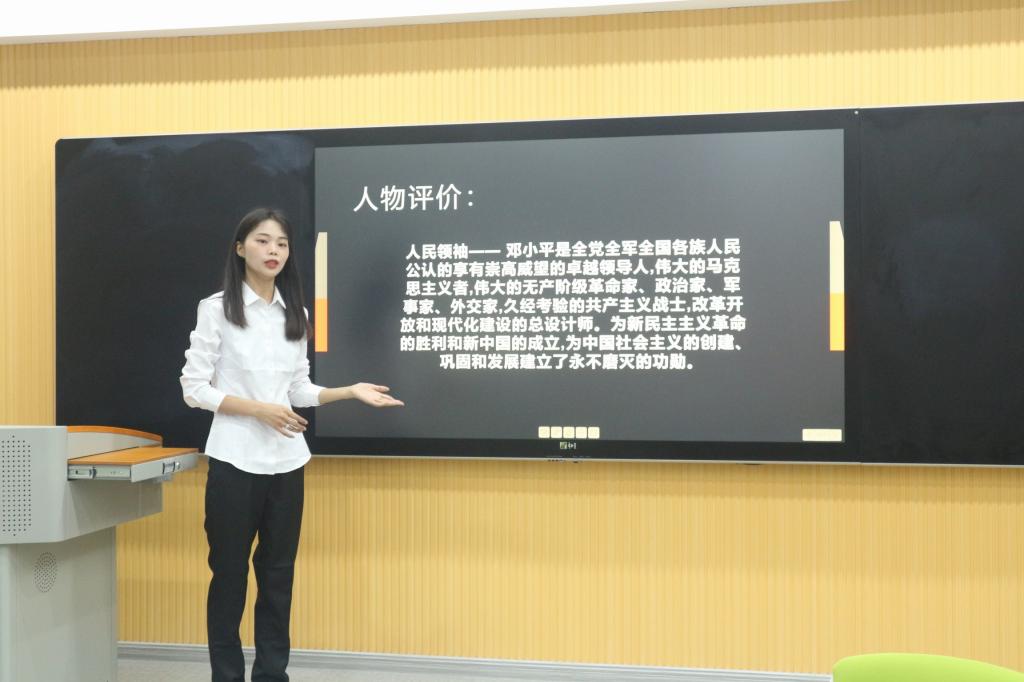 人物评价：
人民领袖—— 邓小平是全党全军全国各族人民
公认的享有崇高威望的卓越领导人,伟大的马克
思主义者,伟大的无产阶级革命家、政治家、军
事家、外交家,久经考验的共产主义战士,改革开
放和现代化建设的总设计师。为新民主主义革命
的胜利和新中国的成立,为中国社会主义的创建、
巩固和发展建立了永不磨灭的功勋。